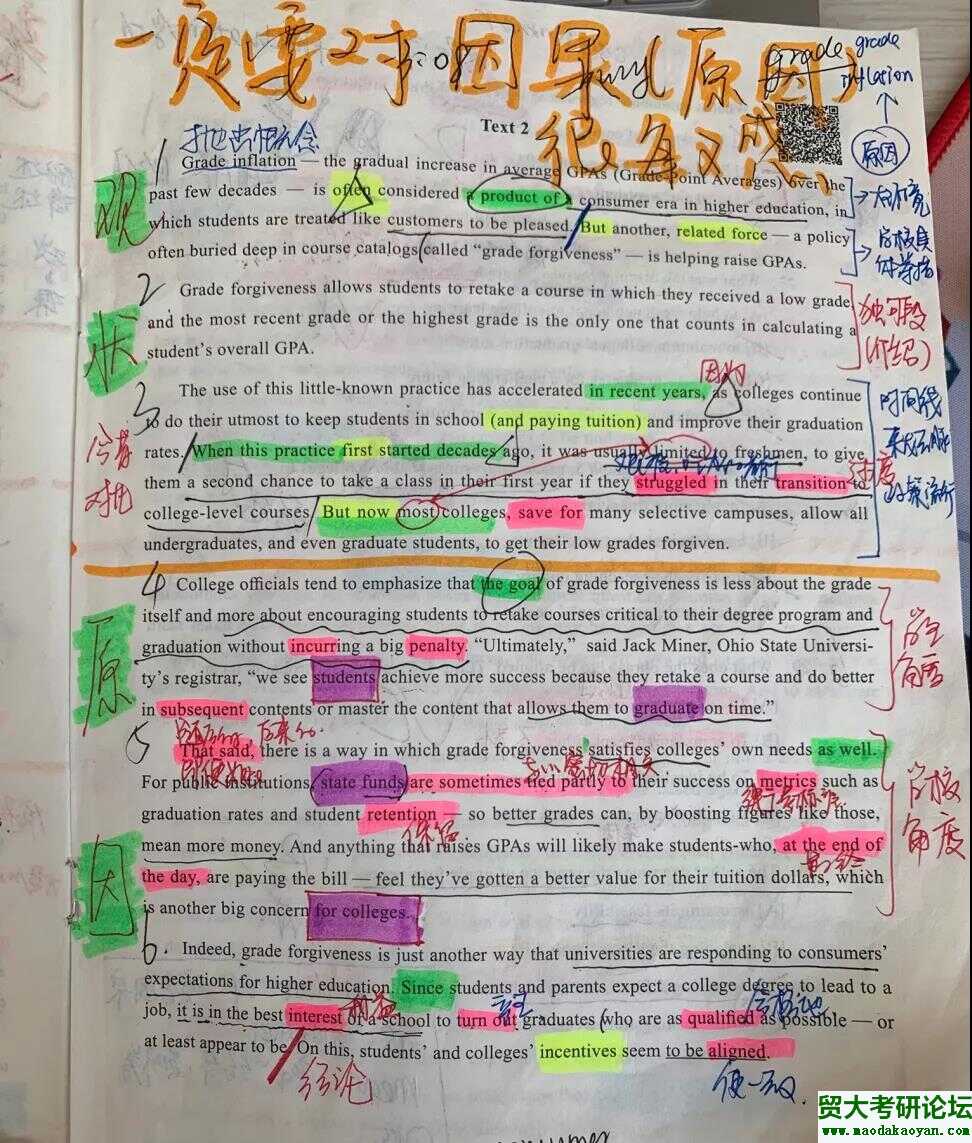 一定要对因果(原因)
很敏感
grade
inflation
原因
Text 2
抛出概念
1
Grade inflation — the gradual increase in average GPAs (Grade-Point Averages) over the
past few decades — is often considered a product of a consumer era in higher education, in
which students are treated like customers to be pleased. But another, related force — a policy
often buried deep in course catalogs called “grade forgiveness” — is helping raise GPAs.
现
大环境
学校具
体举措
2
Grade forgiveness allows students to retake a course in which they received a low grade,
and the most recent grade or the highest grade is the only one that counts in calculating a
student’s overall GPA.
状
独句段
(介绍)
因为
3
The use of this little-known practice has accelerated in recent years, as colleges continue
to do their utmost to keep students in school (and paying tuition) and improve their graduation
rates. When this practice first started decades ago, it was usually limited to freshmen, to give
them a second chance to take a class in their first year if they struggled in their transition to
college-level courses. But now most colleges, save for many selective campuses, allow all
undergraduates, and even graduate students, to get their low grades forgiven.
今昔
对比
时间线
过度
4
College officials tend to emphasize that the goal of grade forgiveness is less about the grade
itself and more about encouraging students to retake courses critical to their degree program and
graduation without incurring a big penalty. “Ultimately,” said Jack Miner, Ohio State Universi-
ty’s registrar, “we see students achieve more success because they retake a course and do better
in subsequent contents or master the content that allows them to graduate on time.”
原
学生
角度
5
That said, there is a way in which grade forgiveness satisfies colleges’ own needs as well.
For public institutions, state funds are sometimes tied partly to their success on metrics such as
graduation rates and student retention — so better grades can, by boosting figures like those,
mean more money. And anything that raises GPAs will likely make students-who, at the end of
the day, are paying the bill — feel they’ve gotten a better value for their tuition dollars, which
is another big concern for colleges.
即便如此
与…密切相关
保留
最终
因
学校
角度
6.
Indeed, grade forgiveness is just another way that universities are responding to consumers’
expectations for higher education. Since students and parents expect a college degree to lead to a
job, it is in the best interest of a school to turn out graduates who are as qualified as possible — or
at least appear to be. On this, students’ and colleges’ incentives seem to be aligned.
利益
合格地
结论
使一致
贸大考研论坛
www.maodakaoyan.com